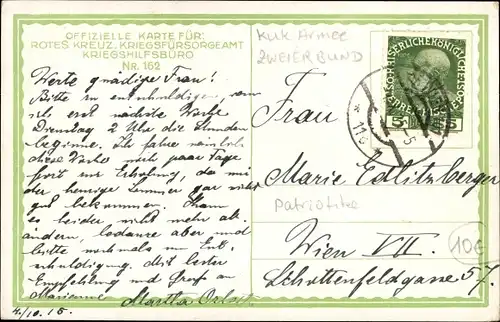 OFFIZIELLE KARTE FÜR:
ROTES KREUZ, KRIEGSFÜRSORGEAMT
KRIEGSHILFSBÜRO
NR. 162
KuK Armee
ZWEIERBUND
Werte gnädige Frau!
Bitte zu entschuldigen, wenn
ich erst nächste Woche
Dienstag 2 Uhr die Stunden
beginne. Ich fahre nämlich
diese Woche noch paar Tage
fort zur Erholung, da mir
der heurige Sommer gar nicht
gut bekommen. Kann
es leider nicht mehr ab-
ändern, bedaure aber und
bitte nochmals um Ent-
schuldigung. Mit bester
Empfehlung und Gruß an
Marianne Martha
4./10.15.
Frau
Marie Edlitzberger
Patriotike
Wien VII.
Schottenfeldgasse 57.
10€
5